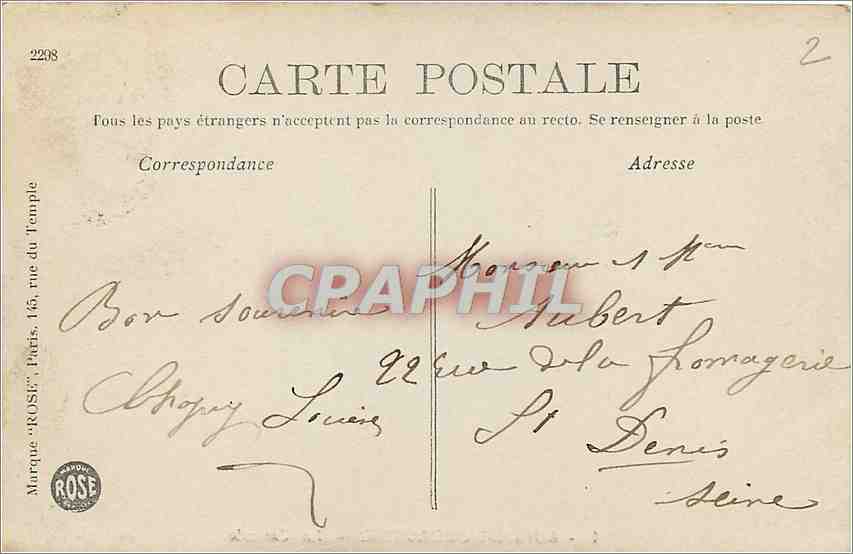 2298
2
CARTE POSTALE
Tous les pays étrangers n'acceptent pas la correspondance au recto. Se renseigner à la poste
Correspondance
Adresse
Marque "ROSE", Paris, 145, rue du Temple
MARQUE
ROSE
CPAPHIL
Bon souvenir
Louise
Monsieur et Mme
Aubert
22 Rue de la fromagerie
St Denis
Seine